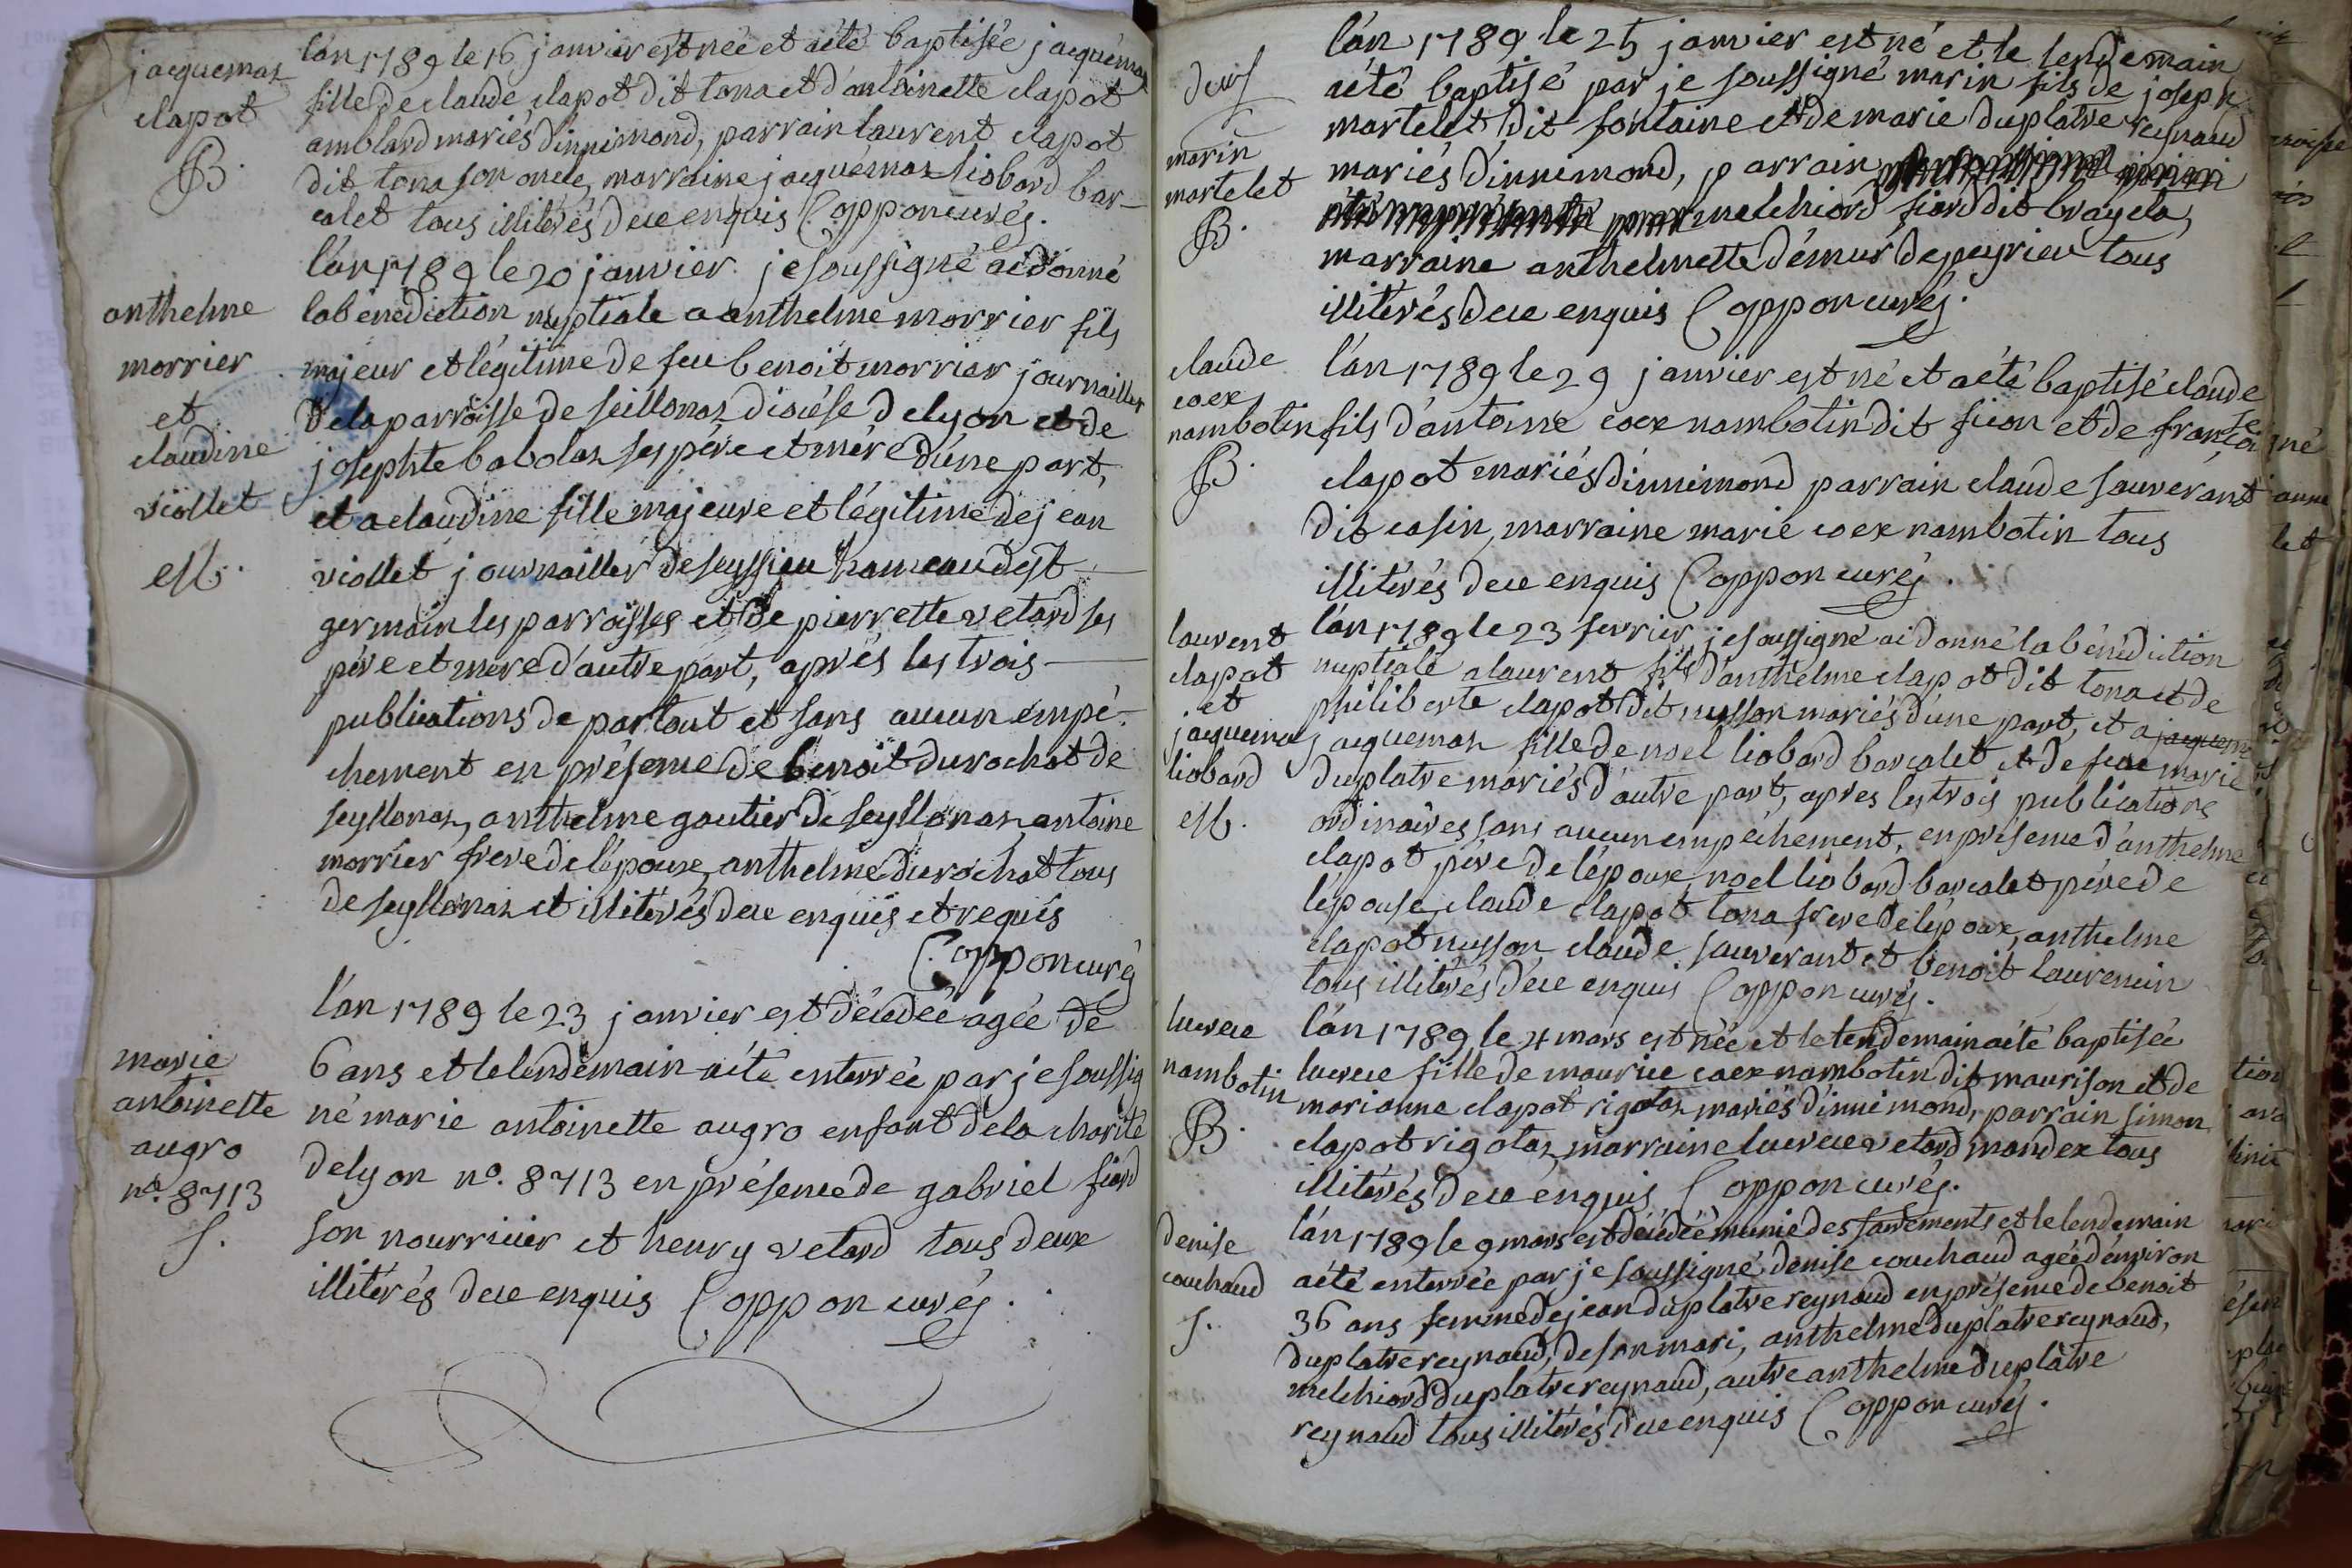 jacquemaz
clapot
B.
l'an 1789 le 16 janvier est née et aété baptisée jacquemaz
fille de claude clapot dit tona et d'antoinette clapot
amblard mariés d'innimond, parrain laurent clapot
dit tona son oncle, marraine jacquémaz liobard bar-
calet tous illitérés de ce enquis Coppon curé.
anthelme
morrier
et
claudine
viollet
l'an 1789 le 20 janvier je soussigné ai donné
la bénédiction nuptiale a anthelme morrier fils
majeur et légitime de feu benoit morrier journaillier
de la parroisse de seillonaz diocése de lyon et de
josephte babolaz ses pére et mére d'une part,
et a claudine fille majeure et légitime de jean
viollet journaillier de seyssieu hameau de st
germain les parroisses et de pierrette vetard ses
pére et mére d'autre part, aprés les trois
publications de partout et sans aucun empé-
chement en présence de benoit durochat de
seyllonaz, anthelme gautier de seyllonaz antoine
morrier frere de l'époux, anthelme durochat tous
de seyllonaz et illitérés de ce enquis et requis
Coppon curé
marie
antoinette
augro
n°. 8713
S.
l'an 1789 le 23 janvier est décédée agée de
6 ans et le lendemain aété enterrée par je soussig
né marie antoinette augro enfant de la charité
de lyon n°. 8713 en présence de gabriel fiard
son nourricier et henry vetard tous deux
illitérés de ce enquis Coppon curé.
marin
martelet
B.
l'an 1789 le 25 janvier est né et le lendemain
aété baptisé par je soussigné marin fils de joseph
martelet dit fontaine et de marie duplatre reynaud
mariés d'innimond, parrain
melchiord fiard dit brayela,
marraine anthelmette démur de peyrieu tous
illitérés de ce enquis Coppon curé.
claude
coex
nambotin
B.
l'an 1789 le 29 janvier est né et aété baptisé claude
fils d'antoine coex nambotin dit ficon et de françoise
clapot mariés d'innimond parrain claude sauverant
dit casin, marraine marie coex nambotin tous
illitérés de ce enquis Coppon curé.
laurent
clapot
et
jacquemaz
liobard
l'an 1789 le 23 fevrier je soussigné ai donné la bénédiction
nuptiale a laurent fils d'anthelme clapot dit tona et de
philiberte clapot dit nusson mariés d'une part, et a
jacquemaz fille de noel liobard barcalet et de feue marie
duplatre mariés d'autre part, apres les trois publications
ordinaires sans aucun empéchement, en présence d'anthelme
clapot pére de l'époux, noel liobard barcalet pére de
l'épouse, claude clapot tona frere de l'époux, anthelme
clapot nusson claude sauverant et benoit laurencin
tous illitérés de ce enquis Coppon curé.
lucrece
nambotin
B.
l'an 1789 le 4 mars est née et le lendemain aété baptisée
lucrece fille de maurice coex nambotin dit maurison et de
marianne clapot rigotaz mariés d'innimond, parrain simon
clapot rigotaz, marraine lucrece vetard mandex tous
illitérés de ce enquis Coppon curé.
denise
couchaud
S.
l'an 1789 le 9 mars est décédée munie des sacrements et le lendemain
aété enterrée par je soussigné denise couchaud agée d'environ
36 ans femme de jean duplatre reynaud en présence de benoit
duplatre reynaud, de son mari, anthelme duplatre reynaud,
melchiord duplatre reynaud, autre anthelme duplatre
reynaud tous illitérés de ce enquis Coppon curé.